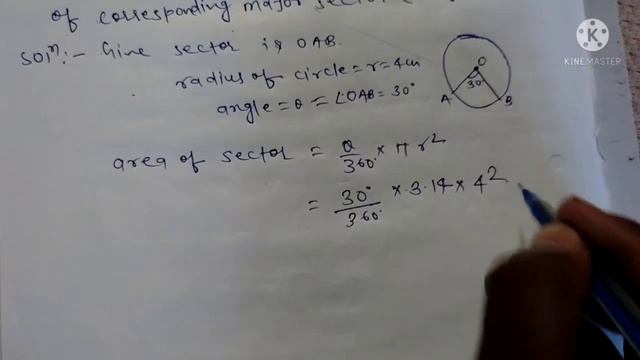 of corresponding major sector (
Solⁿ:- Give sector is OAB.
radius of circle = r = 4cm
angle = θ = ∠OAB = 30°
O
30°
A
B
area of sector = θ/360° × π r²
= 30°/360° × 3.14 × 4²
K
KINEMASTER